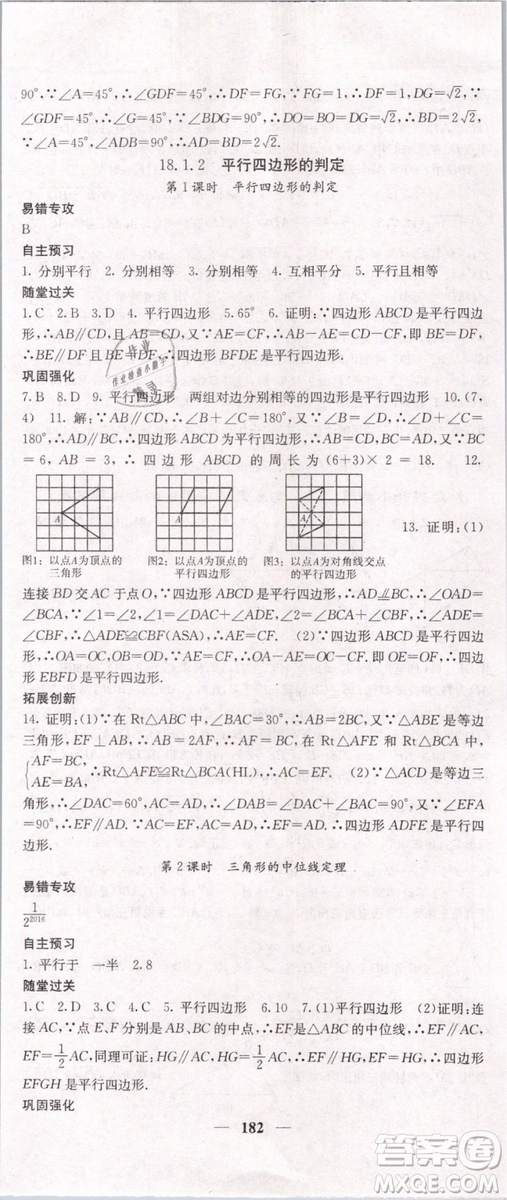 90°.∵∠A=45°,∴∠GDF=45°,∴DF=FG,∵FG=1,∴DF=1,DG=√2,
∵∠GDF=45°,∴∠G=45°,∵∠BDG=90°,∴DO=BO=DG=√2,∴BD=2√2,
∵∠A=45°,∠ADB=90°,∴AD=BD=2√2.
18.1.2 平行四边形的判定
第1课时 平行四边形的判定
易错专攻
B
自主预习
1. 分别平行 2. 分别相等 3. 分别相等 4. 互相平分 5. 平行且相等
随堂过关
1. C 2. B 3. D 4. 平行四边形 5. 65° 6. 证明:∵四边形ABCD是平行四边
形,∴AB∥CD,且AB=CD,又∵AE=CF,∴AB-AE=CD-CF,即BE=
DF,∴BE∥DF且BE=DF,∴四边形BFDE是平行四边形.
巩固强化
7. B 8. D 9. 平行四边形 两组对边分别相等的四边形是平行四边形 10. (7,
4) 11. 解:∵AB∥CD,∴∠1+∠2=180°,∵∠B=∠D,∴∠1+∠C=
180°,∴AD∥BC,∴四边形ABCD是平行四边形,∴AB=CD,AD=BC,∵BC
=6,AB=3,∴四边形ABCD的周长为(6+3)×2=18. 12.
A
A
A
13. 证明:(1)
图1:以点A为顶点的三角形
图2:以点A为顶点的平行四边形
图3:以点A为对角线交点的平行四边形
连接BD交AC于点O,∵四边形ABCD是平行四边形,∴AD∥BC,∴∠OAD=
∠BCA,∵∠1=∠2,∠1=∠CAD+∠ADE,∠2=∠BCA+∠CBF,∴∠ADE=
∠CBF,∴△ADE≌△CBF(ASA),∴AE=CF;(2)∵四边形ABCD是平行四
边形,∴OA=OC,OB=OD,∵AE=CF,∴OA-AE=OC-CF,即OE=OF,∴四边
形EBFD是平行四边形.
拓展创新
14. 证明:(1)∵在Rt△ABC中,∠BAC=30°,∴AB=2BC,又∵△ABE是等边
三角形,EF⊥AB,∴AB=2AF,∴AF=BC,在Rt△AFE和Rt△BCA中,
{AF=BC, AE=BA, ∴Rt△AFE≌Rt△BCA(HL),∴AC=EF.(2)∵△ACD是等边三
角形,∴∠DAC=60°,AC=AD,∴∠DAB=∠DAC+∠BAC=90°,又∵∠EFA
=90°,∴EF∥AD.∵AC=EF,AC=AD,∴EF=AD,∴四边形ADFE是平行四
边形.
第2课时 三角形的中位线定理
易错专攻
1/2²⁰¹⁶
自主预习
1. 平行于 一半 2. 8
随堂过关
1. C 2. D 3. C 4. A 5. 平行四边形 6. 10 7. (1)平行四边形 (2)证明:连
接AC,∵点E、F分别是AB、BC的中点,∴EF是△ABC的中位线,∴EF∥AC,
EF=1/2AC,同理可证:HG∥AC,HG=1/2AC,∴EF∥HG,EF=HG,∴四边形
EFGH是平行四边形.
巩固强化
182
答案圈